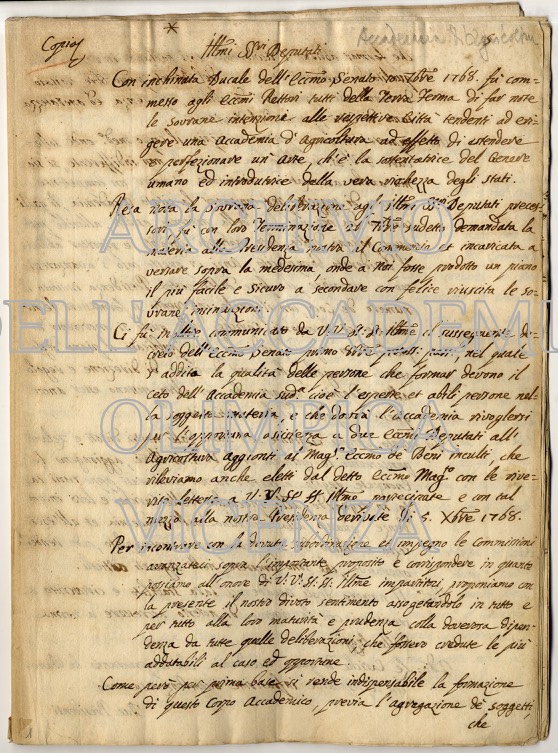 Copia
Accademia d'Agricoltura
Illmi SSri Deputati
Con inchinata Ducale dell'Eccmo Senato 10 7bre 1768. fù com-
messo agli Eccmi Rettori tutti della Terra Ferma di far note
le sovrane intenzioni alle rispettive Città tendenti ad eri-
gere una Accademia d'Agricoltura ad effetto di estendere
e perfezionare un'Arte, ch'è la sostentatrice del Genere
umano ed introdutrice della vera richezza degli stati.
Resa nota la sovrana deliberazione agl'Illmi SSri Deputati preces-
sori fù con loro Terminazione sudetto demandata la
materia alla Presidenza nostra il Commercio et incaricata a
versare sopra la medesima onde a Noi fosse prodotto un piano
il più facile e sicuro a secondare con felice riuscita le so-
vrane incinuazioni.
Ci fù inoltre communicato da V.V. SS. Illme il susseguente de-
creto dell'Eccmo Senato primo nel quale
s'addita la qualità delle persone che formar devono il
ceto dell'Accademia sudta cioè l'esperte et abili persone nel-
la soggetta materia, e che dovrà l'Accademia rivogliersi
per l'opportuna assistenza a due Eccmi Deputati all'
Agricoltura aggionti al Mago Eccmo de Beni inculti, che
rileviamo anche eletti dal detto Eccmo Mago con le rive-
rite lettere a V.V. SS. Illme partecipate e con tal
mezzo alla nostra Presidenza devenute li 5. Xbre 1768.
Per incontrare con la dovuta subordinazione et impegno le Commissioni
avanzateci sopra l'importante proposito e corrispondere in quanto
possiamo all'onore di V.V. SS. Illme impartitoci, proponiamo con
la presente il nostro divoto sentimento assogetandolo in tutto e
per tutto alla loro maturità e prudenza colla doverosa dipen-
denza da tutte quelle deliberazioni, che fossero credute le più
addatabili al caso ed opportune.
Come però per prima base si rende indispensabile la formazione
di questo Corpo Accademico, previa l'agregazione de soggetti,
che
ARCHIVIO
DELL'ACCADEMIA
OLIMPICA
VICENZA